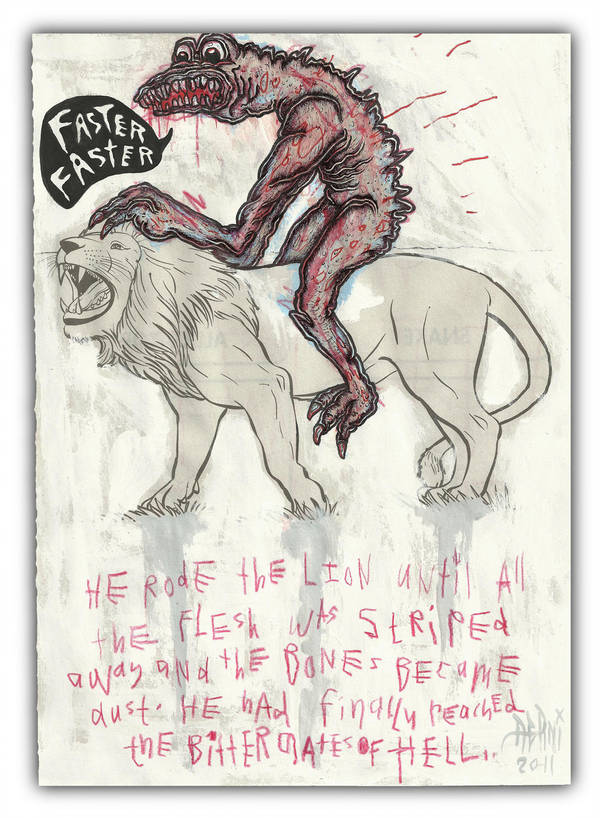 FASTER
FASTER
HE RODE the LION UNtil All
the FLESH WAS StRiPED
aWAY AND the BONES BECAME
dust. HE HAD finally reached
the Bitter GAtES OF HELL..
2011